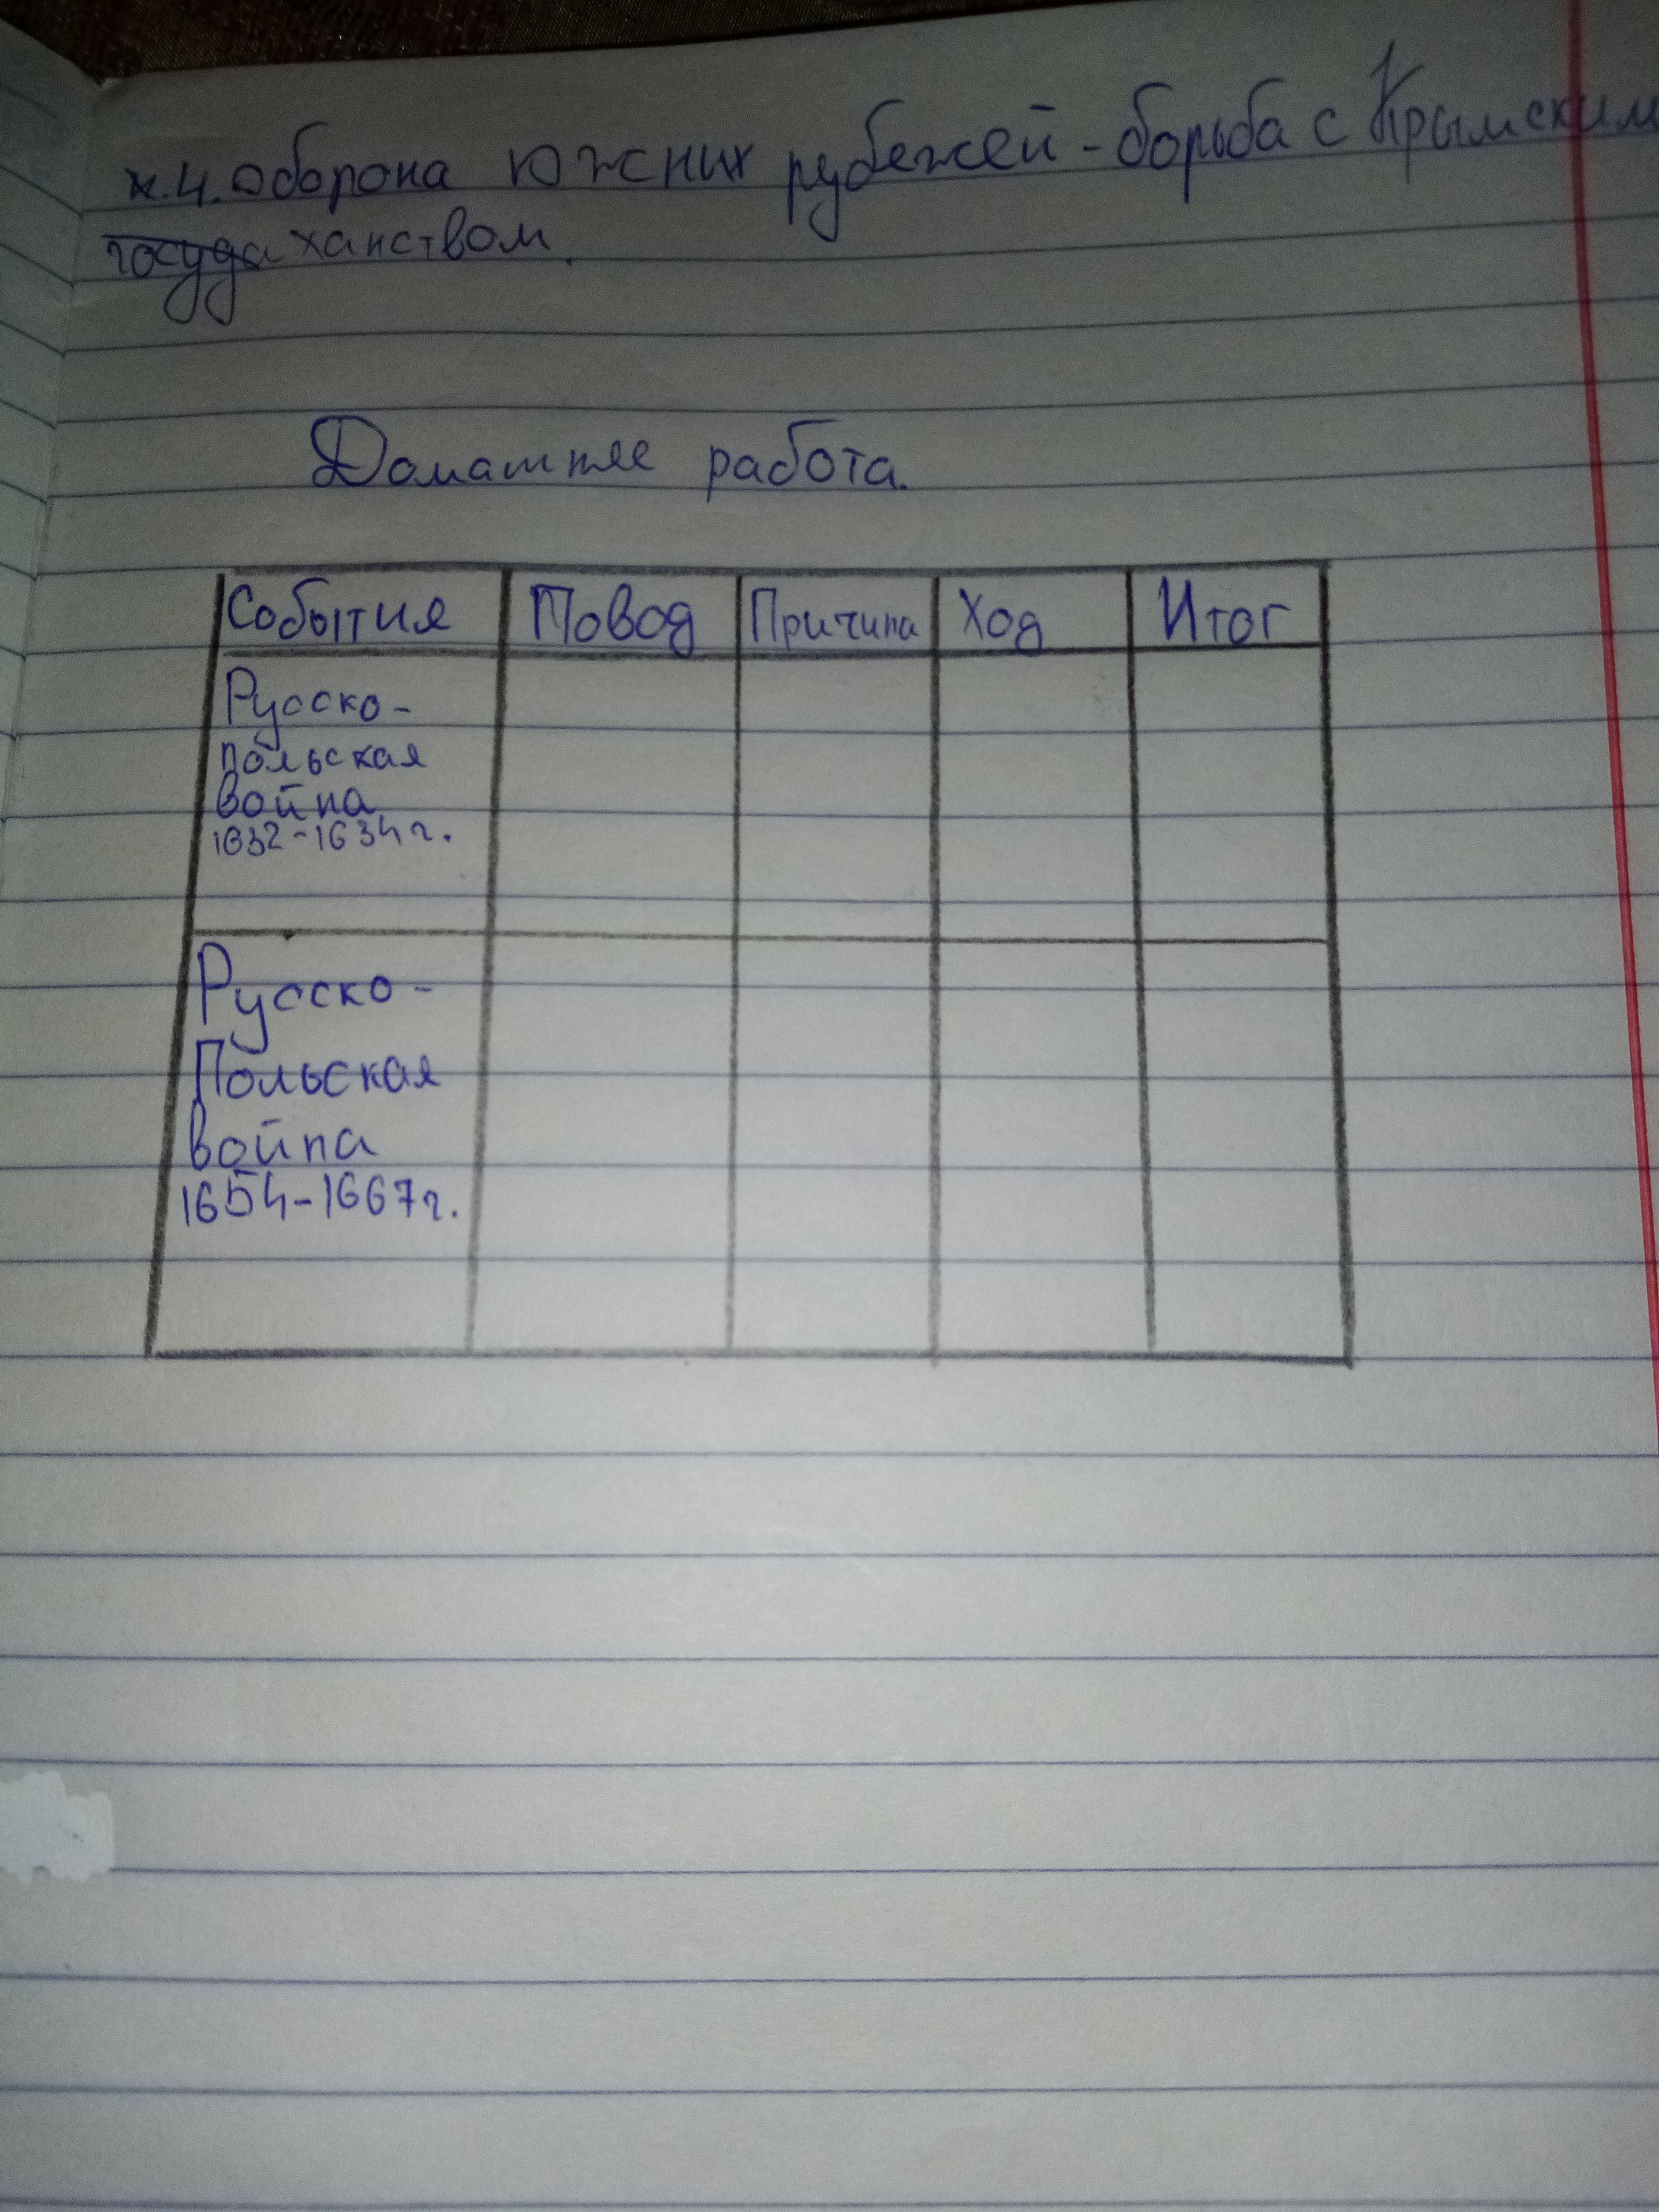 н.4. Оборона южних рубежей - борьба с Крымским
госуда ханством.
Домашняе работа.
События Повод Причина Ход Итог
Русско-
польская
война
1632-1634г.
Русско-
Польская
война
1654-1667г.